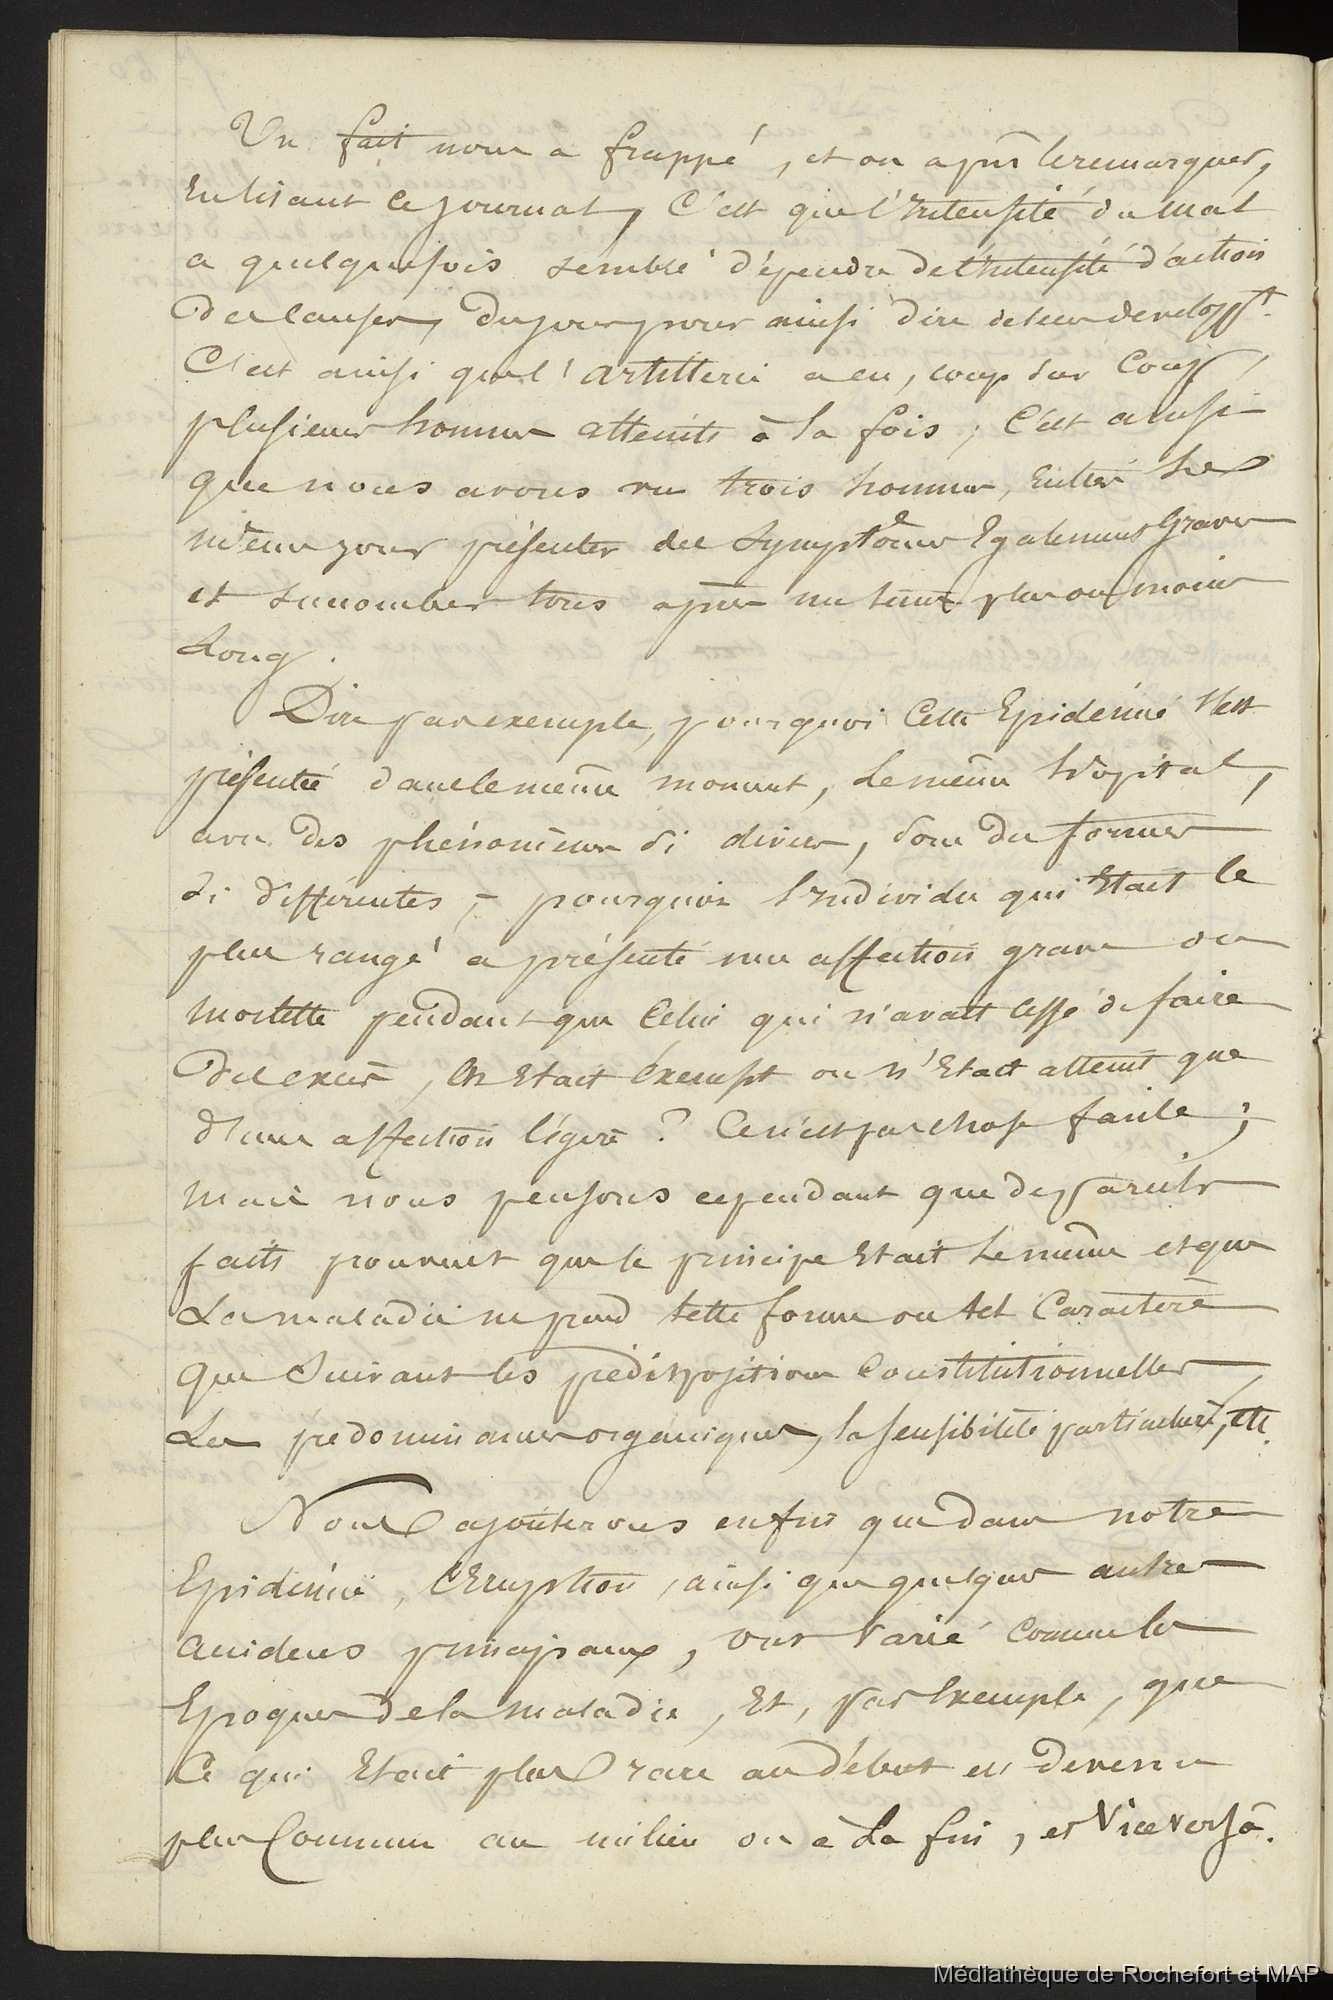 Un fait nous a frappé, et on a pu le remarquer,
En lisant ce journal, C'est que l'Intensité du mal
a quelquefois semblé dépendre de l'intensité d'action
Des causes, du jour pour ainsi dire de leur developpt.
C'est ainsi que l'artillerie a eu, coup sur coup,
plusieurs hommes atteints à la fois ; C'est ainsi
que nous avons vu trois hommes, Entrés le
même jour présenter des symptômes Egalement Graves
et succomber tous après un tems plus ou moins
Long.
Dire par exemple, pourquoi Cette Epidémie s'est
présentée dans le même moment, le même hôpital,
avec Des phénomènes si divers, sous des formes
si différentes, - pourquoi l'Individu qui Etait le
plus rangé a présenté une affection grave ou
mortelle pendant que Celui qui n'avait cessé de faire
Des excès, en Etait Exempt ou n'Etait atteint que
d'une affection légère ? Ce n'est pas chose facile ;
mais nous pensons cependant que de pareils
faits prouvent que le principe Etait le même et que
La maladie ne prend telle forme ou tel Caractère
que suivant les prédispositions Constitutionnelles
Les prédominances organiques, la sensibilité particulière, etc.
Nous ajouterons enfin que dans notre
Epidémie, l'Eruption, ainsi que quelques autres
accidens principaux, ont varié comme les
Epoques de la maladie, Et, par Exemple, que
Ce qui Etait plus rare au début est devenu
plus Commun au milieu ou à la fin, et Vice Versâ.
Médiathèque de Rochefort et MAP